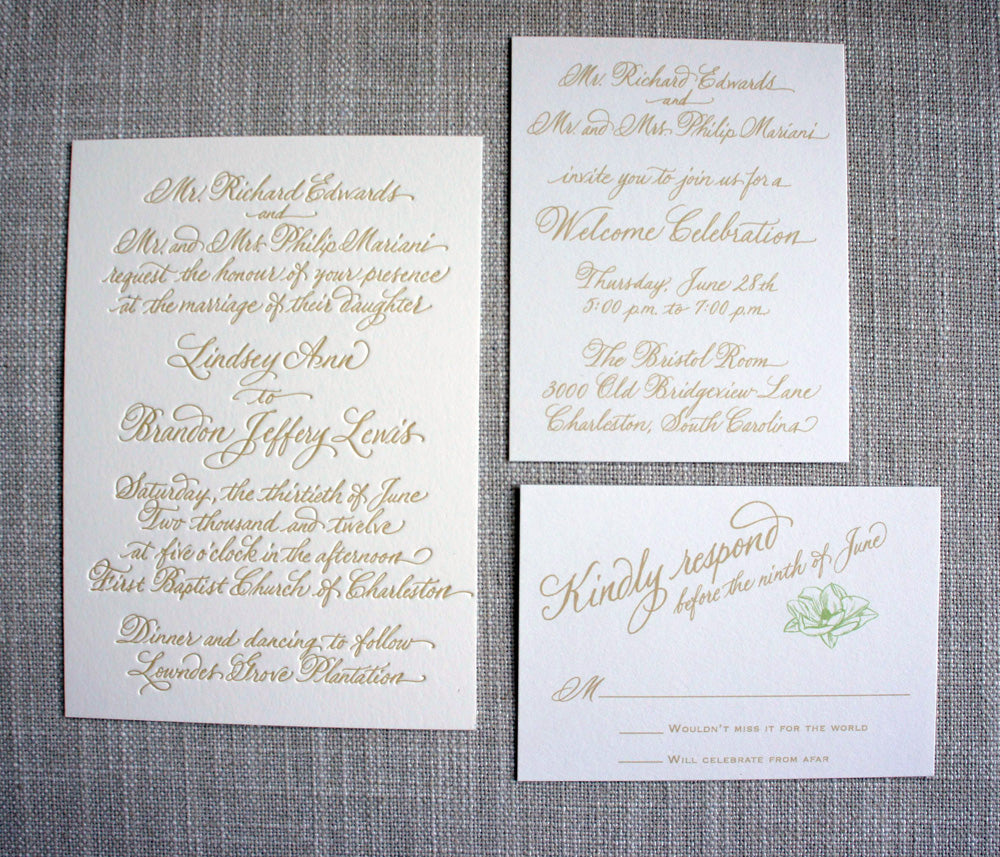 Mr. Richard Edwards
and
Mr. and Mrs. Philip Mariani
request the honour of your presence
at the marriage of their daughter
Lindsey Ann
to
Brandon Jeffery Lewis
Saturday, the thirtieth of June
Two thousand and twelve
at five o'clock in the afternoon
First Baptist Church of Charleston
Dinner and dancing to follow
Lowndes Grove Plantation
Mr. Richard Edwards
and
Mr. and Mrs. Philip Mariani
invite you to join us for a
Welcome Celebration
Thursday, June 28th
5:00 p.m. to 7:00 p.m.
The Bristol Room
3000 Old Bridgeview Lane
Charleston, South Carolina
Kindly respond
before the ninth of June
M
Wouldn't miss it for the world
Will celebrate from afar